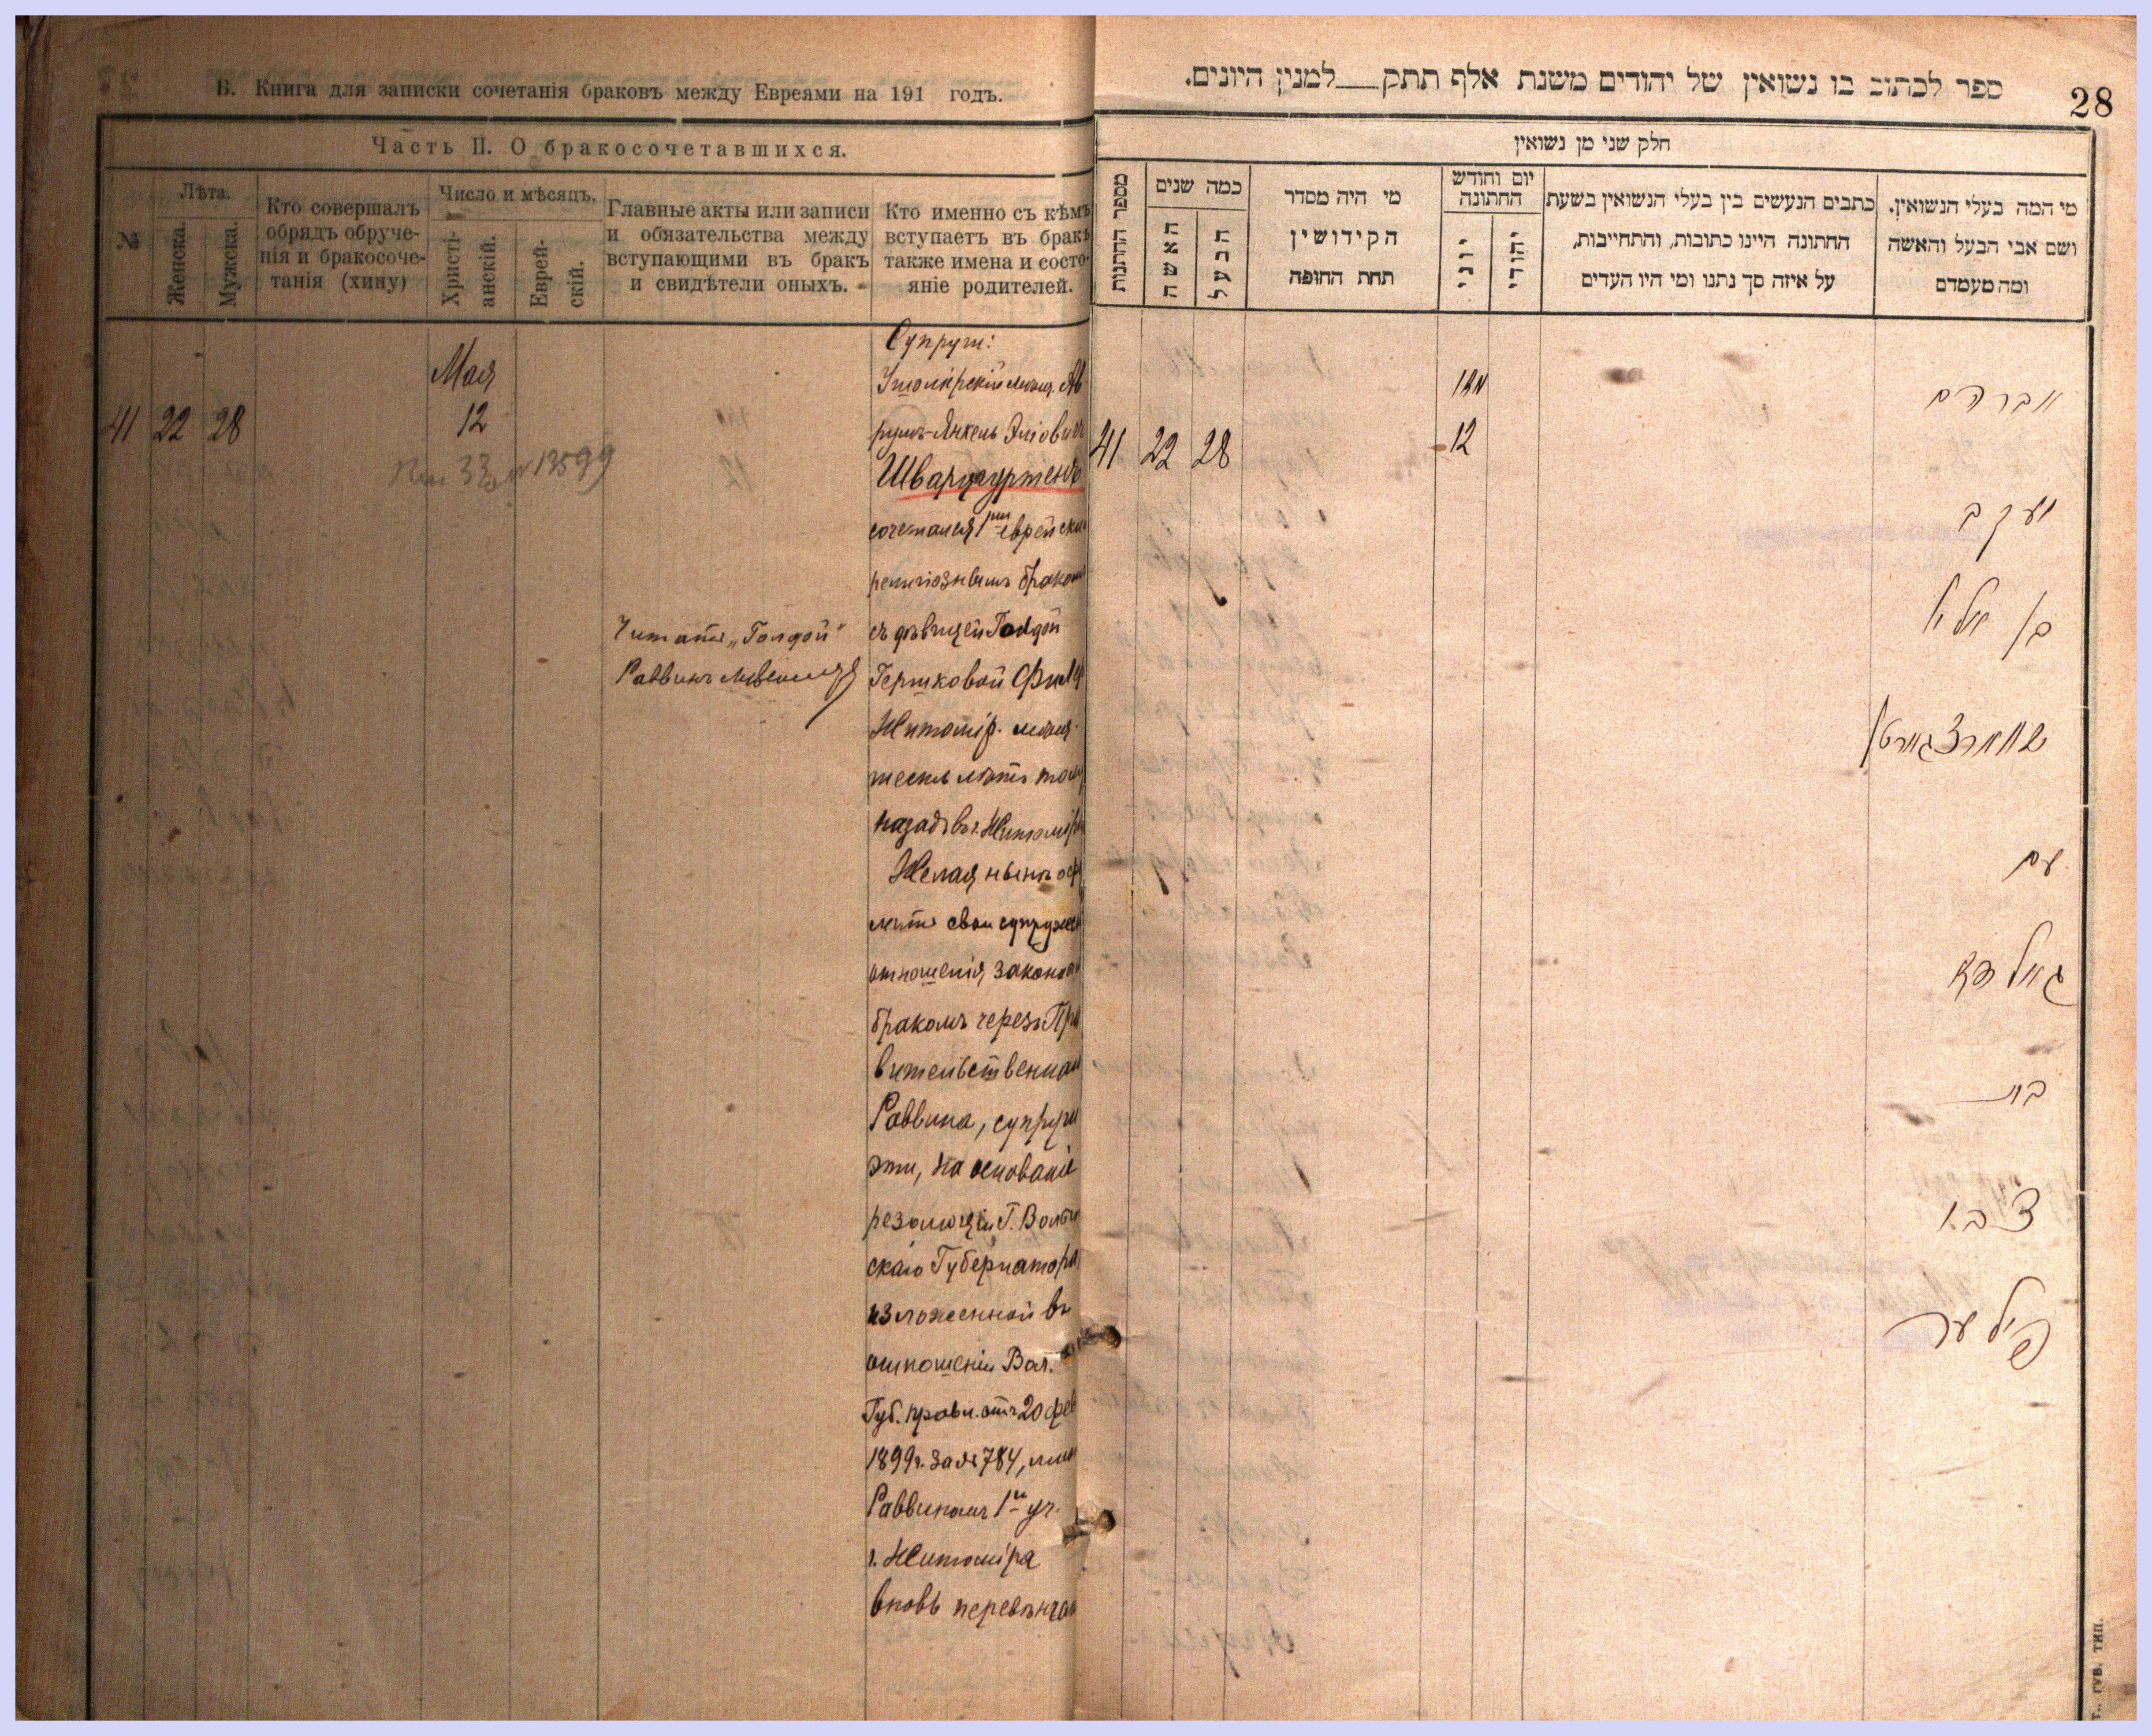 В. Книга для записки сочетанія браковъ между Евреями на 191 годъ.
Часть II. О бракосочетавшихся.
№
Лѣта.
Женска.
Мужска.
Кто совершалъ
обрядъ обруче-
нія и бракосоче-
танія (хину)
Число и мѣсяцъ.
Христі-
анскій.
Еврей-
скій.
Главные акты или записи
и обязательства между
вступающими въ бракъ
и свидѣтели оныхъ.
Кто именно съ кѣмъ
вступаетъ въ бракъ
также имена и состо-
яніе родителей.
41 22 28
Мая
12
33 № 13599
Читать „Голдой"
Раввинъ
Супруги:
Житомірскій мѣщ. Ав
румъ-Янкель Эліовичъ
Шварцгуртенъ
сочетался 1мъ еврейским
религіознымъ браком
съ дѣвицей Голдой
Гершковой Филер
Житомір. мѣщ.
шесть лѣтъ тому
назадъ въ г. Житомірѣ
Желая нынѣ оф
мить свои супружес
отношенія законн
бракомъ черезъ Пра
вительственнаго
Раввина, супруги
эти, на основаніи
резолюціи Г. Волын
скаго Губернатора
изложенной въ
отношеніи Вол.
Губ. правл. отъ 20 фев
1899 г. за № 784, мною
Раввиномъ 1го уч.
г. Житоміра
вновь перевѣнчан
ספר לכתוב בו נשואין של יהודים משנת אלף תתק למנין היונים.
28
חלק שני מן נשואין
מספר החתנות
כמה שנים
האשה
הבעל
מי היה מסדר
הקידושין
תחת החופה
יום וחודש
החתונה
יוני
יהודי
כתבים הנעשים בין בעלי הנשואין בשעת
החתונה היינו כתובות, והתחייבות,
על איזה סך נתנו ומי היו העדים
מי המה בעלי הנשואין.
ושם אבי הבעל והאשה
ומה מעמדם
41 22 28
מאי
12
אברהם
יעקב
בן אלי
שווארצגורטן
עם
גאלדא
בת
צבי
פילער
Т., ГУБ. ТИП.